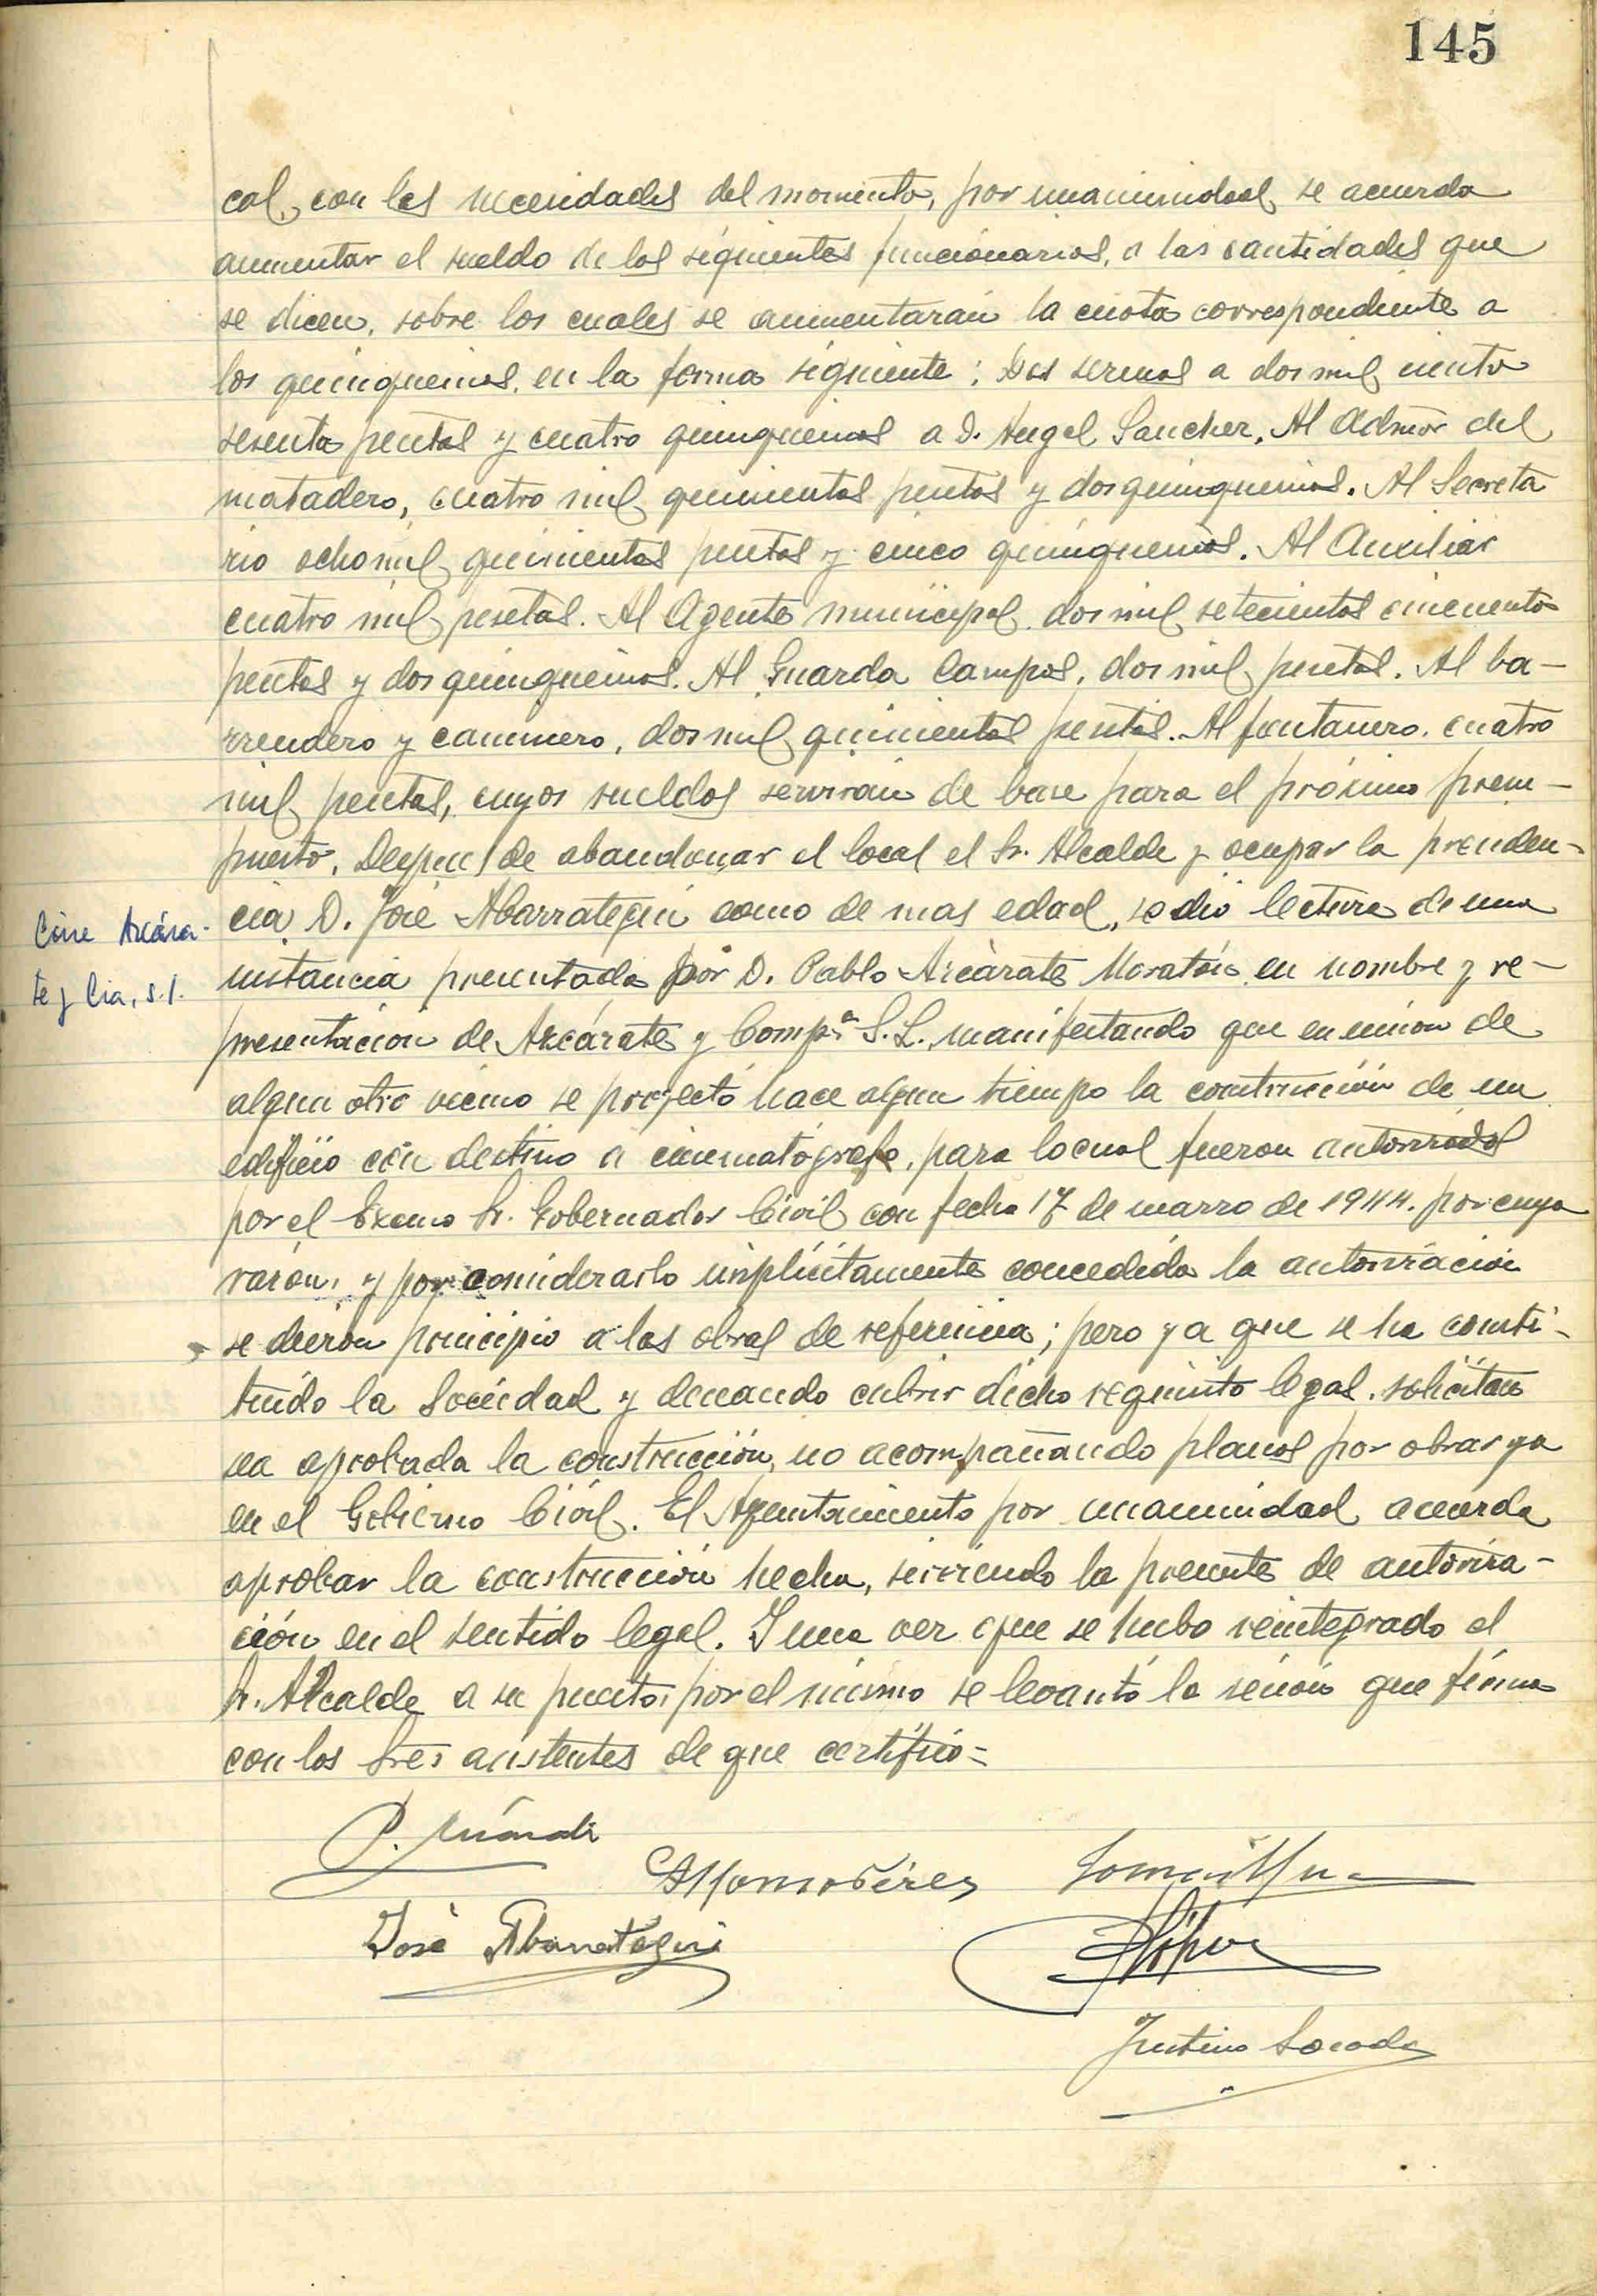 145
cal, con las necesidades del momento, por unanimidad se acuerda
aumentar el sueldo de los siguientes funcionarios, a las cantidades que
se dicen, sobre los cuales se aumentarán la cuota correspondiente a
los quinquenios, en la forma siguiente: Dos serenos a dos mil ciento
sesenta pesetas y cuatro quinquenios a D. Angel Sanchez. Al Admor del
matadero, cuatro mil quinientas pesetas y dos quinquenios. Al Secreta
rio ocho mil quinientas pesetas y cinco quinquenios. Al Auxiliar
cuatro mil pesetas. Al Agente municipal dos mil setecientas cincuenta
pesetas y dos quinquenios. Al Guarda Campos, dos mil pesetas. Al ba-
rrendero y caminero, dos mil quinientas pesetas. Al fontanero, cuatro
mil pesetas, cuyos sueldos servirán de base para el próximo presu-
puesto. Despues de abandonar el local el Sr. Alcalde y ocupar la presiden-
cia D. José Abarrategui como de mas edad, se dio lectura de una
Cine Azcára-
te y Cia, S.l.
instancia presentada por D. Pablo Azcárate Moratón en nombre y re-
presentación de Azcárate y Comp.ª S.L. manifestando que en union de
algun otro vecino se proyectó hace algun tiempo la construcción de un
edificio con destino a cinematógrafo, para lo cual fueron autorizados
por el Excmo Sr. Gobernador Civil con fecha 17 de marzo de 1944. por cuya
razón, y por considerarlo implícitamente concedida la autorización
se dieron principio a las obras de referencia; pero ya que se ha consti-
tuído la Sociedad y deseando cubrir dicho requisito legal, solicitan
sea aprobada la construcción, no acompañando planos por obrar ya
en el Gobierno Civil. El Ayuntamiento por unanimidad acuerda
aprobar la construcción hecha, sirviendo la presente de autoriza-
ción en el sentido legal. Y una vez que se hubo reintegrado el
Sr. Alcalde a su puesto, por el mismo se levantó la sesión que firma
con los Sres asistentes de que certifico=
José Abarrategui
Justino Losada